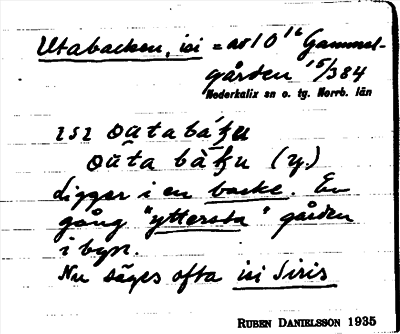 Utabacken, isi = av 10¹⁶ Gammel-
gården ¹⁵/384
Nederkalix sn o. tg. Norrb. län
ligger i en backe. En
gång "yttersta" gården
i byn.
Nu säges ofta isi Siris
RUBEN DANIELSSON 1935